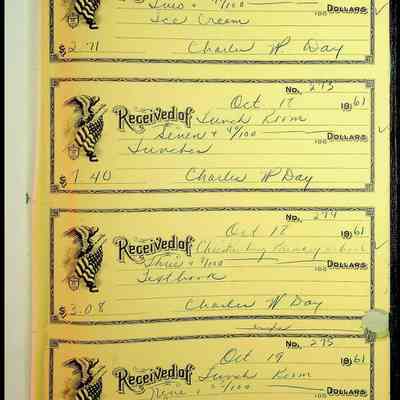 Two & 71/100 DOLLARS
100
Ice Cream
$2.71 Charles W. Day
No. 293
Oct 17 1961
Received of Lunch Room
Seven & 40/100 DOLLARS
100
Lunches
$7.40 Charles W Day
No. 294
Oct 18 1961
Received of Primary School
Three & /100 DOLLARS
100
Textbook
$3.08 Charles W. Day
No. 295
Oct 19 1961
Received of Lunch Room
Nine & /100 DOLLARS
100